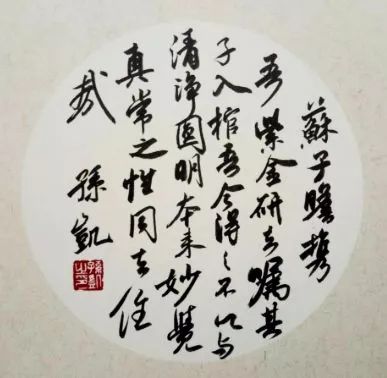 蘇子瞻携
吾紫金研去嘱其
子入棺吾今得之不以与
清净圆明本来妙觉
真常之性同去住
哉
孫凱